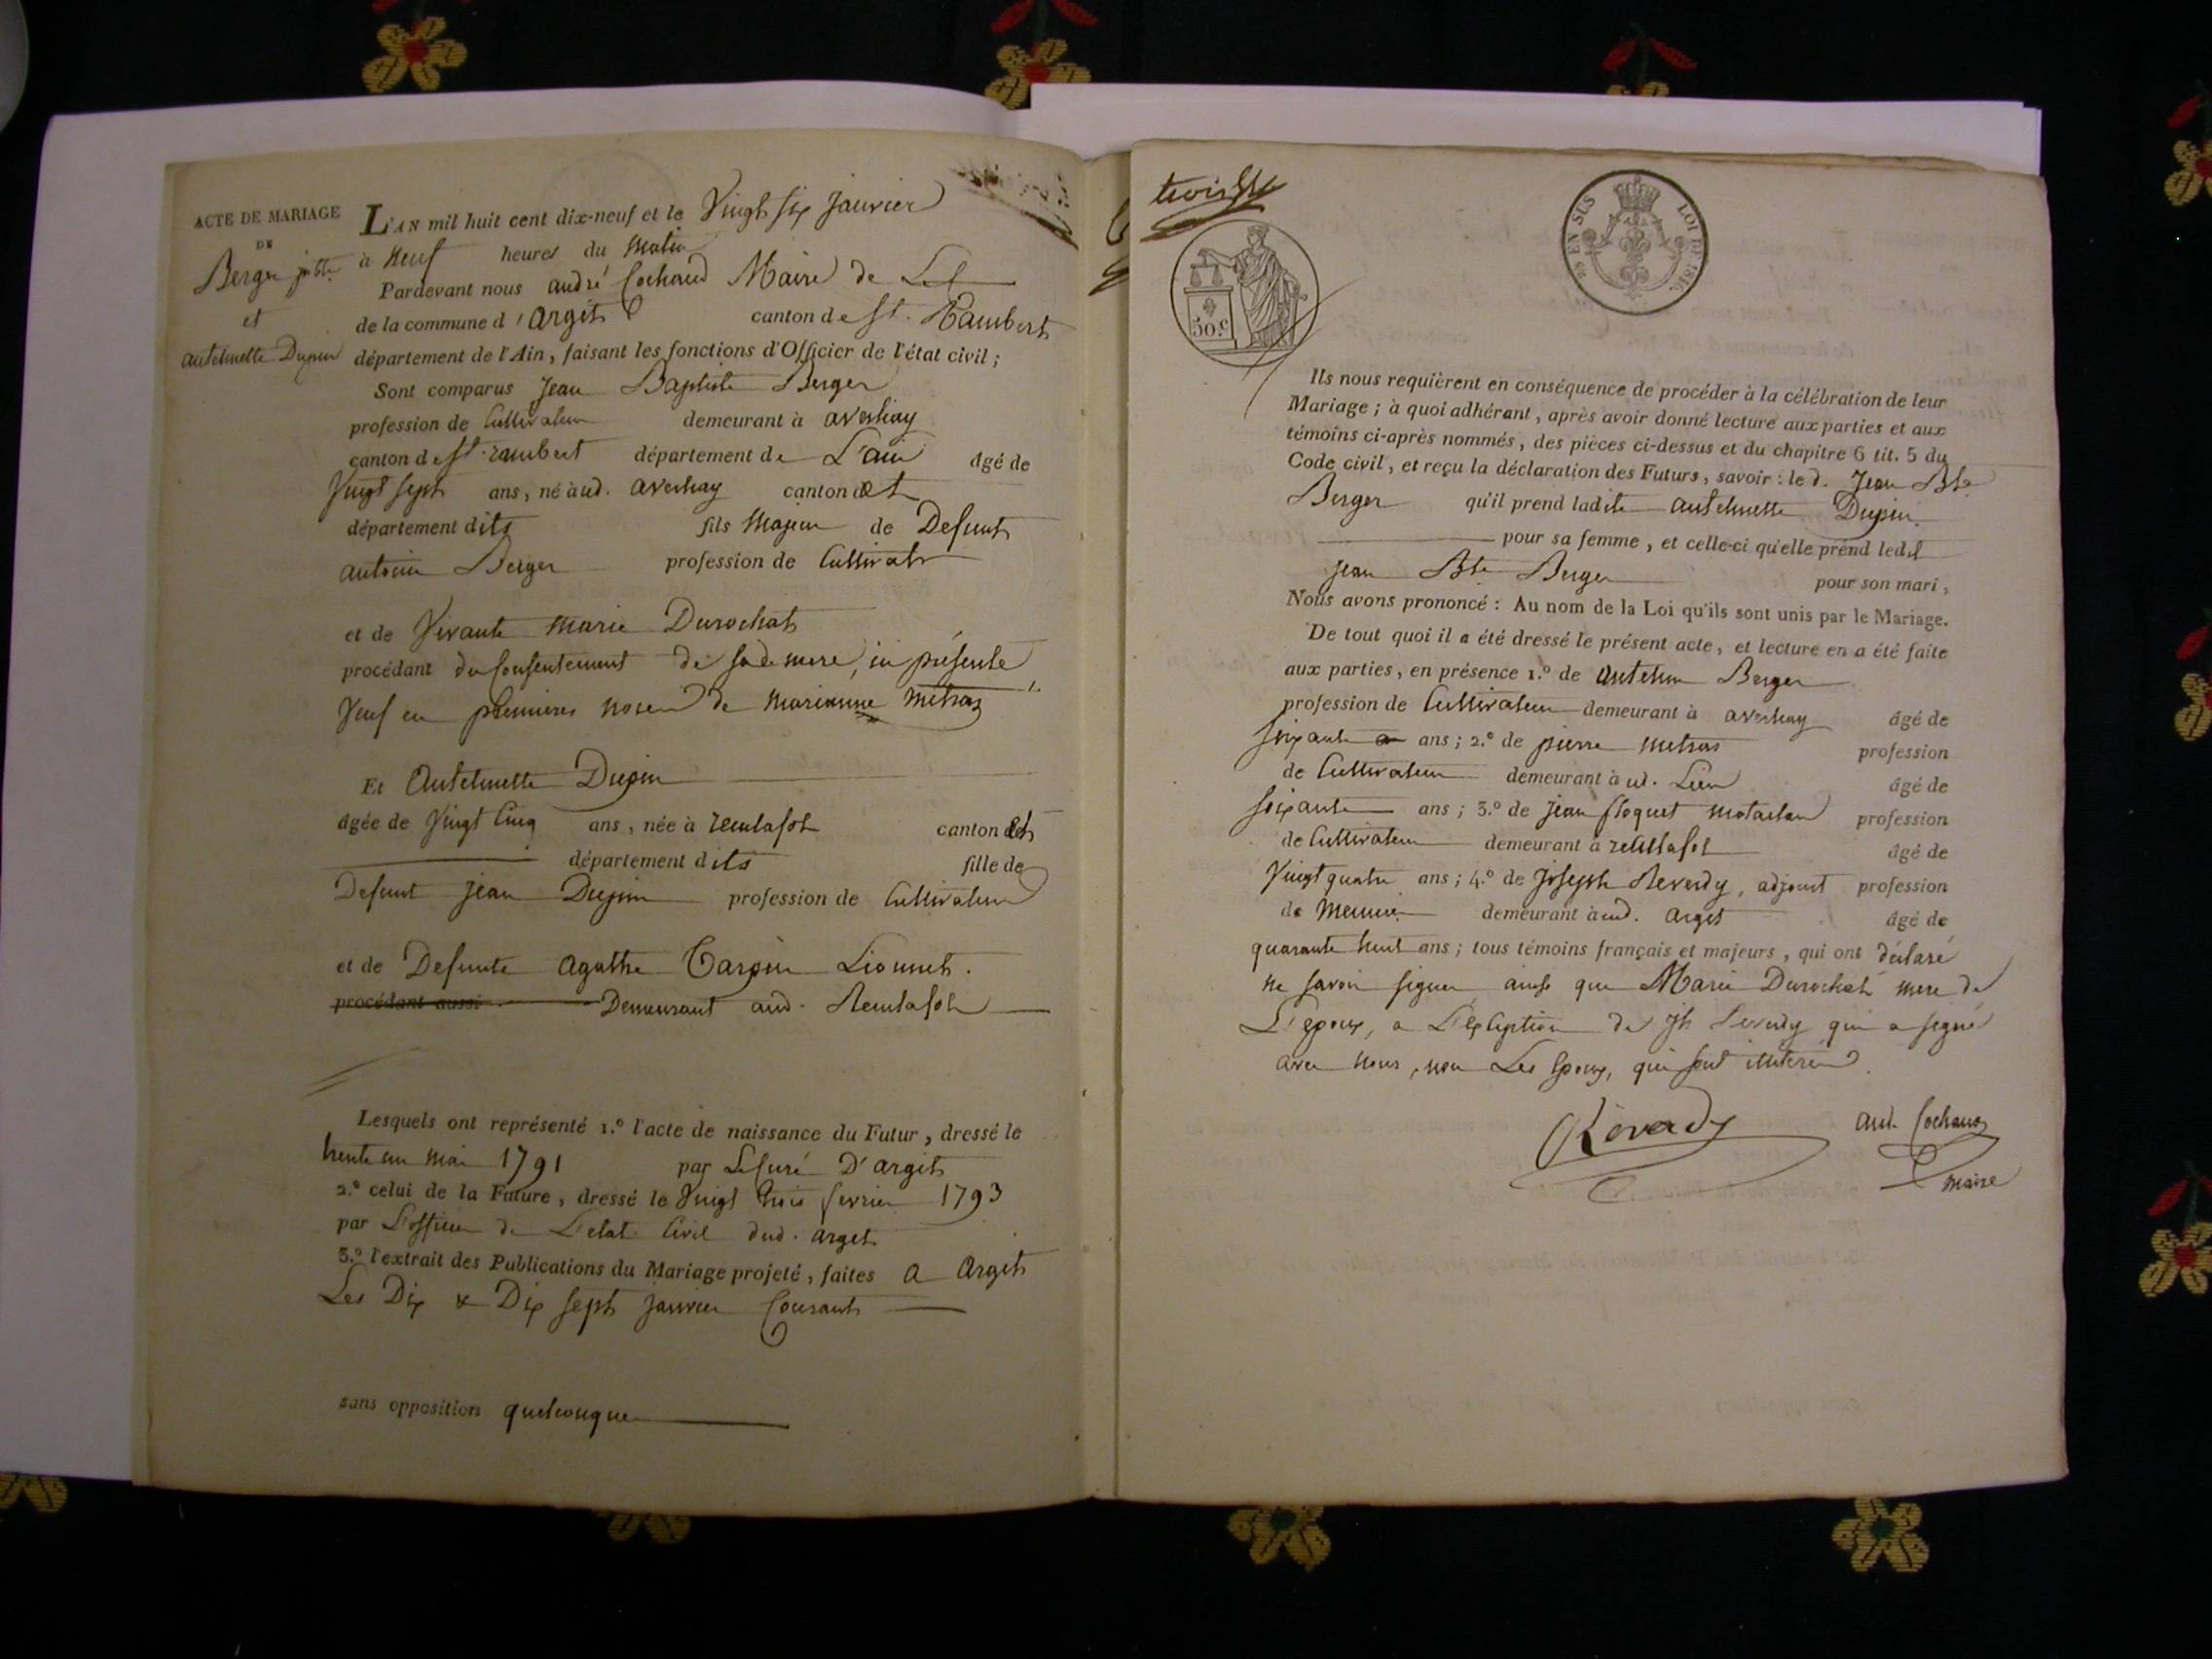 ACTE DE MARIAGE
DE
Berger
et
antelmette Dupin
L'AN mil huit cent dix-neuf et le Vingt six janvier
à neuf heures du matin
Pardevant nous andré Cochaud Maire de
de la commune d'argit canton de st. Rambert
département de l'Ain, faisant les fonctions d'Officier de l'état civil;
Sont comparus jean Baptiste Berger
profession de Cultivateur demeurant à averliay
canton de st. rambert département de L'ain âgé de
Vingt sept ans, né aud. averliay canton
département dits fils Majeur de Defunt
antoine Berger profession de Cultivatr
et de Vivante marie Durochat
procédant du Consentement de sade mere, ici présente
Veuf en premieres noses de marianne métras
Et Antelmette Dupin
âgée de Vingt Cinq ans, née à reculafol canton
département dits fille de
Defunt jean Dupin profession de Cultivateur
et de Defunte agathe Carrier Lionnet.
procédant aussi Demeurant aud. Reculafol
Lesquels ont représenté 1.º l'acte de naissance du Futur, dressé le
trente un mai 1791 par Le Curé D'argit
2.º celui de la Future, dressé le Vingt trois fevrier 1793
par L'officier de L'etat Civil dud. arget
3.º l'extrait des Publications du Mariage projeté, faites a Argit
Les Dix & Dix sept janvier Courant
sans opposition quelconque
trois
50.c
EN SUS LOI DE 1816.
Ils nous requièrent en conséquence de procéder à la célébration de leur
Mariage; à quoi adhérant, après avoir donné lecture aux parties et aux
témoins ci-après nommés, des pièces ci-dessus et du chapitre 6 tit. 5 du
Code civil, et reçu la déclaration des Futurs, savoir: le d. Jean Bte
Berger qu'il prend ladite antelmette Dupin
pour sa femme, et celle-ci qu'elle prend ledit
jean Bte Berger pour son mari,
Nous avons prononcé: Au nom de la Loi qu'ils sont unis par le Mariage.
De tout quoi il a été dressé le présent acte, et lecture en a été faite
aux parties, en présence 1.º de antelme Berger
profession de Cultivateur demeurant à averliay âgé de
soixante ans; 2.º de pierre métras profession
de Cultivateur demeurant à ud. Lieu âgé de
soixante ans; 3.º de jean floquet profession
de Cultivateur demeurant à reculafol âgé de
Vingt quatre ans; 4.º de joseph Reverdy, adjoint profession
de meunier demeurant aud. arget âgé de
quarante huit ans; tous témoins français et majeurs, qui ont déclaré
ne savoir signer, ainsi que Marie Durochat mere de
L'epoux, a L'exception de jh Reverdy qui a signé
avec nous, non Les Epoux, qui sont illiterés
Reverdy
And. Cochaud
maire